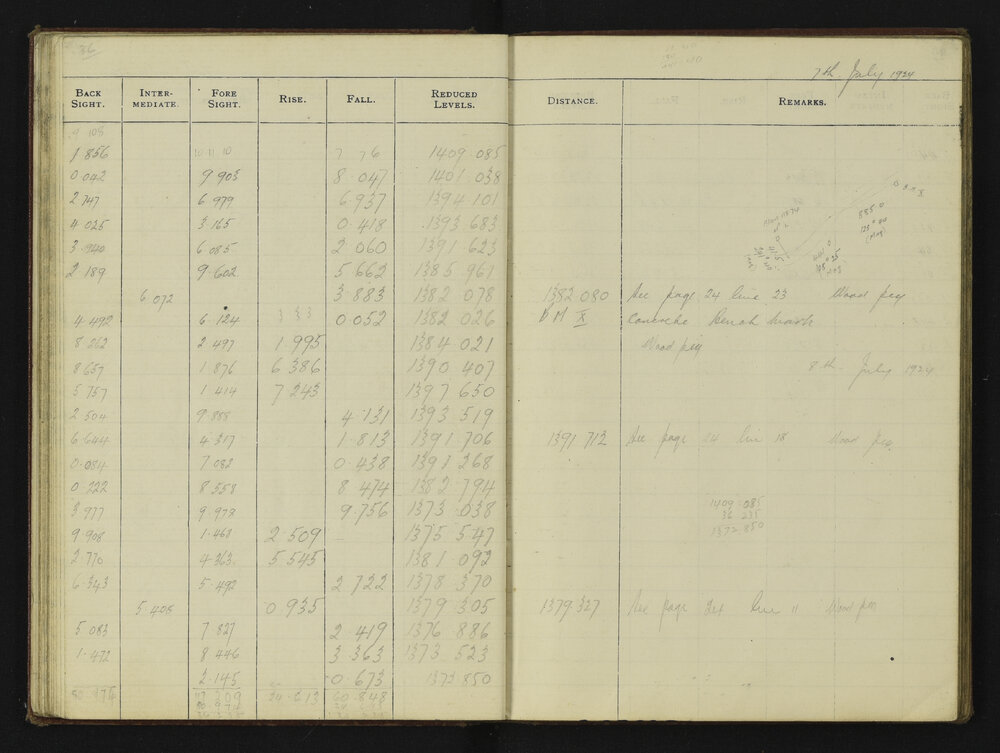 36
7th July 1924
BACK SIGHT. INTER-MEDIATE. FORE SIGHT. RISE. FALL. REDUCED LEVELS. DISTANCE. REMARKS.
9 108
1 856 7 76 1409 085
0 042 9 903 8 047 1401 038
2 747 6 979 6 937 1394 101
4 025 3 165 0 418 1393 683
3 940 6 085 2 060 1391 623
2 189 9 602 5 662 1385 961
6 072 3 883 1382 078 1382 080 See page 24 line 23 Wood peg
4 492 6 124 0 052 1382 026 B M X Concrete Bench Mark
8 262 2 497 1.995 1384 021 Wood peg
8 657 1 876 6 386 1390 407 8th July 1924
5 757 1 414 7 243 1397 650
2 504 9 888 4 131 1393 519
6 644 4 317 1 813 1391 706 1391 712 See page 24 line 18 Wood peg
0 084 7 082 0 438 1391 268
0 222 8 558 8 474 1382 794
3 977 9 978 9 756 1373 038
9 908 1 468 2 509 1375 547
2 770 4 363 5 545 1381 092
6 343 5 492 2 722 1378 370
5 408 0 935 1379 305 1379 327 See page line 11 Wood peg
5 083 7 827 2 419 1376 886
1 472 8 446 3 363 1373 523
2 145 0 673 1372 850
24 613 60 848
1409 085
36 235
1372 850